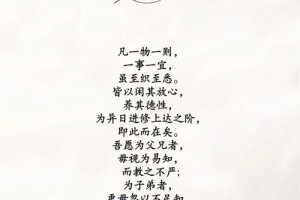 凡一物一则，
一事一宜，
虽至织至悉。
皆以闲其放心，
养其德性，
为异日进修上达之阶，
即此而在矣。
吾愿为父兄者，
毋视为易知，
而教之不严；
为子弟者，
更毋忽以不足知，